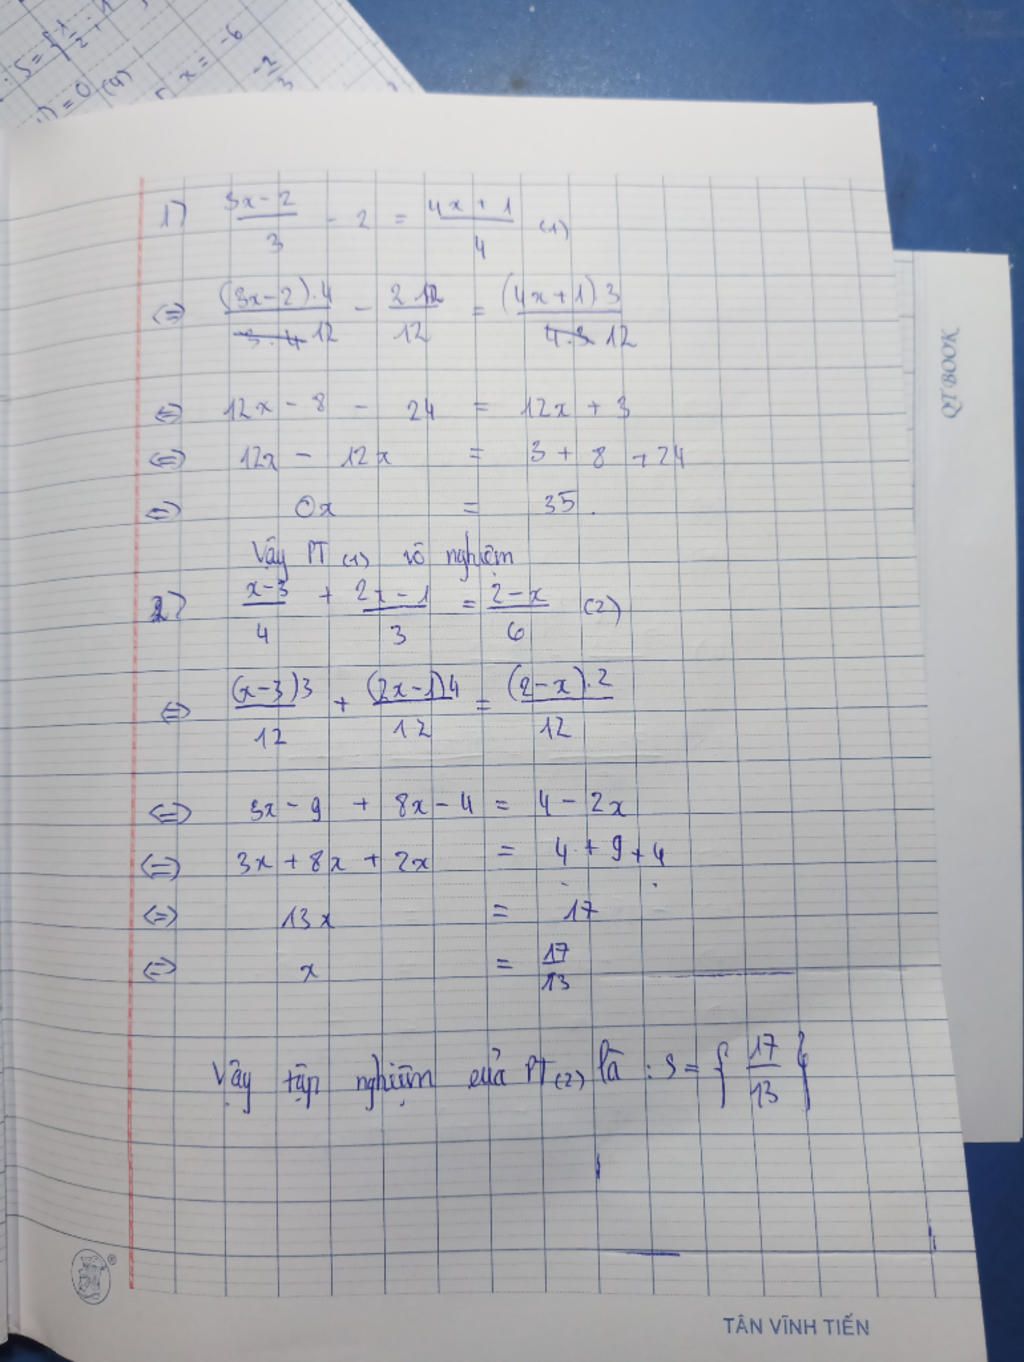 : S = {
1/2
= 0 (4)
x = -6
-2/3
1) (3x-2)/3 - 2 = (4x+1)/4 (1)
<=> (3x-2).4/12 - 2.12/12 = (4x+1)3/12
<=> 12x - 8 - 24 = 12x + 3
<=> 12x - 12x = 3 + 8 + 24
<=> 0x = 35.
Vậy PT (1) vô nghiệm
2) (x-3)/4 + (2x-1)/3 = (2-x)/6 (2)
<=> (x-3)3/12 + (2x-1)4/12 = (2-x).2/12
<=> 3x - 9 + 8x - 4 = 4 - 2x
<=> 3x + 8x + 2x = 4 + 9 + 4
<=> 13x = 17
<=> x = 17/13
Vậy tập nghiệm của PT (2) là : S = { 17/13 }
QT BOOK
TÂN VĨNH TIẾN